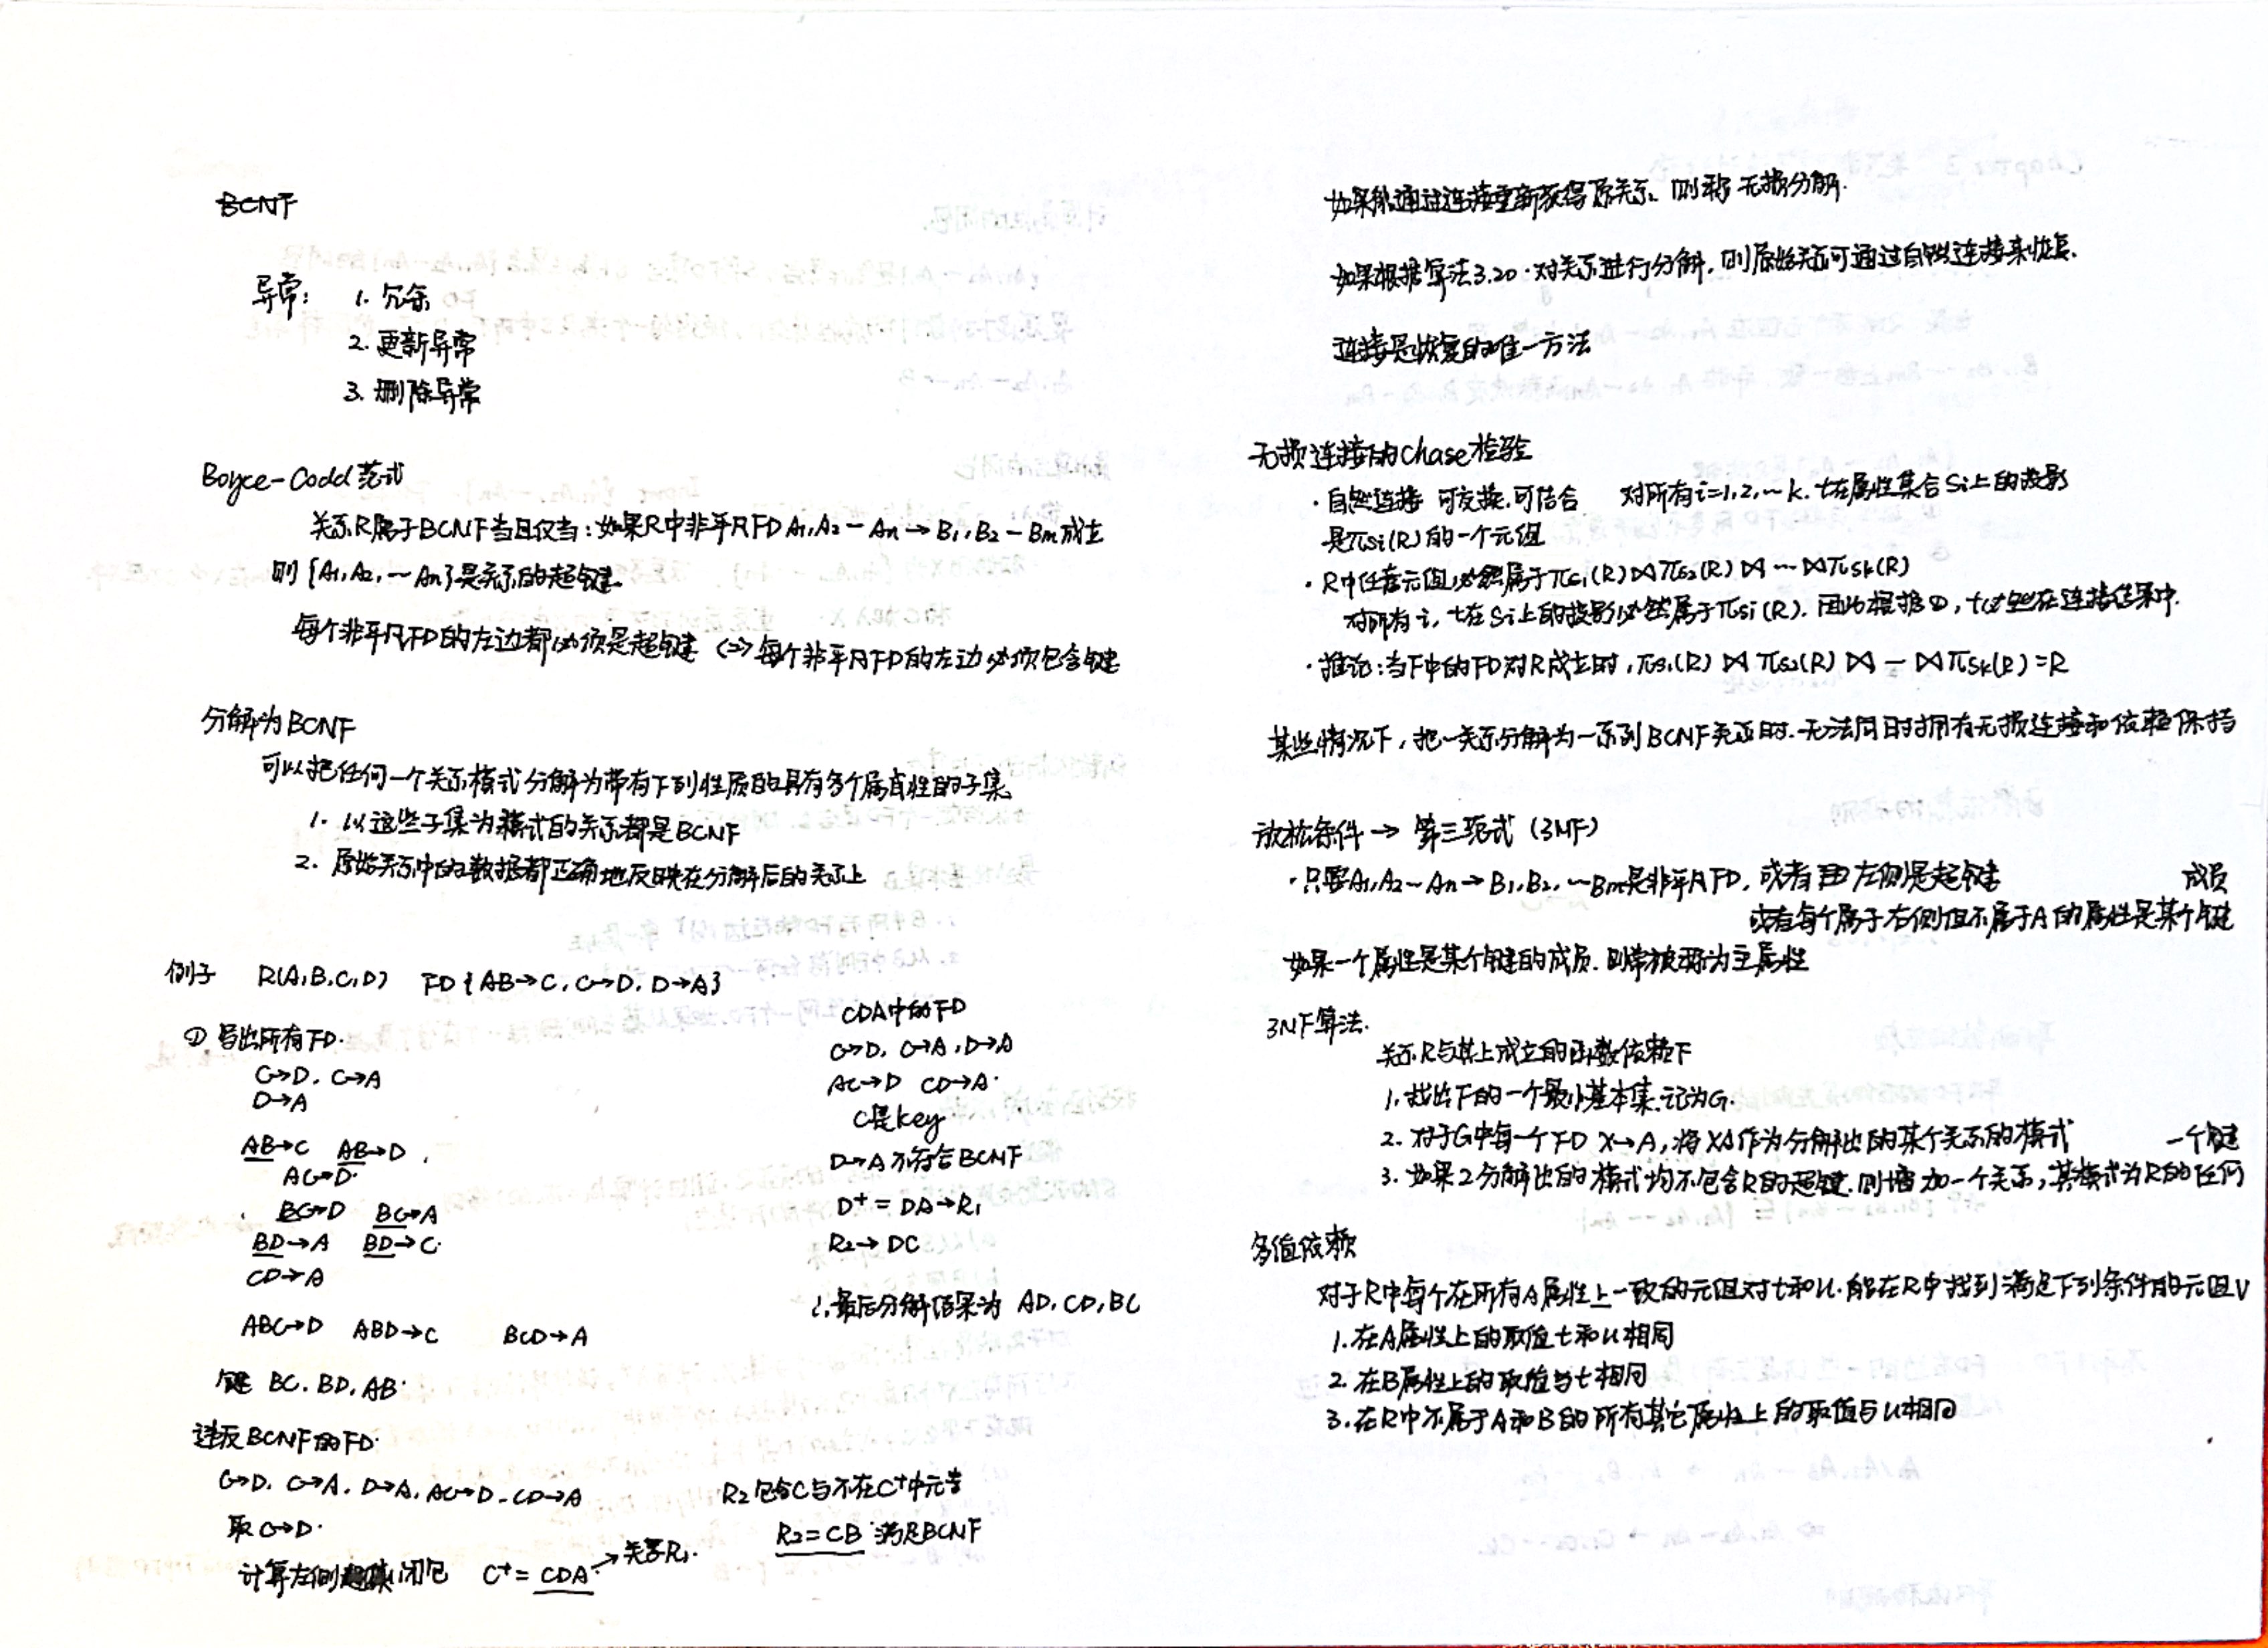 BCNF
异常: 1. 冗余
2. 更新异常
3. 删除异常
Boyce-Codd范式
关系R属于BCNF当且仅当:如果R中非平凡FD A₁,A₂—An→B₁,B₂—Bm成立
则{A₁,A₂,…An}是关系的超键.
每个非平凡FD的左边都必须是超键 <=> 每个非平凡FD的左边必须包含键
分解为BCNF
可以把任何一个关系模式分解为带有下列性质的具有多个属性的子集
1. 以这些子集为模式的关系都是BCNF
2. 原始关系中的数据都正确地反映在分解后的关系上
例子 R(A,B,C,D) FD{AB→C, C→D, D→A}
① 导出所有FD.
C→D. C→A
D→A
AB→C AB→D,
AC→D.
BC→D BC→A
BD→A BD→C.
CD→A
ABC→D ABD→C BCD→A
键 BC. BD, AB.
违反BCNF的FD.
C→D. C→A. D→A. AC→D. CD→A
取C→D.
计算左侧闭包 C⁺= CDA →关系R₁.
R₂包含C与不在C⁺中元素
R₂=CB 满足BCNF
CDA中的FD
C→D, C→A, D→A
AC→D CD→A.
C是key
D→A不符合BCNF
D⁺= DA→R₁
R₂→ DC
∴最后分解结果为 AD, CD, BC
如果能通过连接重新获得原关系、则称 无损分解.
如果根据算法3.20.对关系进行分解,则原始关系可通过自然连接来恢复.
连接是恢复的唯一方法
无损连接的chase检验
·自然连接 可交换.可结合 对所有i=1,2,…k. t在属性集合Si上的投影
是πsi(R)的一个元组
·R中任意元组必然属于πs₁(R)⋈πs₂(R)⋈…⋈πsk(R)
对所有i, t在Si上的投影必然属于πsi(R). 因此根据①, t也在连接结果中.
·推论:当F中的FD对R成立时,πs₁(R)⋈πs₂(R)⋈—⋈πsk(R)=R
某些情况下,把一关系分解为一系列BCNF关系时.无法同时拥有无损连接和依赖保持
放松条件→ 第三范式(3NF)
·只要A₁,A₂~An→B₁,B₂,…Bm是非平凡FD, 或者 左侧是超键
或者每个属于右侧但不属于A的属性是某个键成员
如果一个属性是某个键的成员.则常被称为主属性
3NF算法.
关系R与其上成立的函数依赖F
1.找出F的一个最小基本集.记为G.
2. 对于G中每一个FD X→A,将XA作为分解出的某个关系的模式
3. 如果2分解出的模式均不包含R的超键.则增加一个关系,其模式为R的任何一个键
多值依赖
对于R中每个在所有A属性上一致的元组对t和u.能在R中找到满足下列条件的元组V
1.在A属性上的取值t和u相同
2.在B属性上的取值与t相同
3.在R中不属于A和B的所有其它属性上的取值与u相同